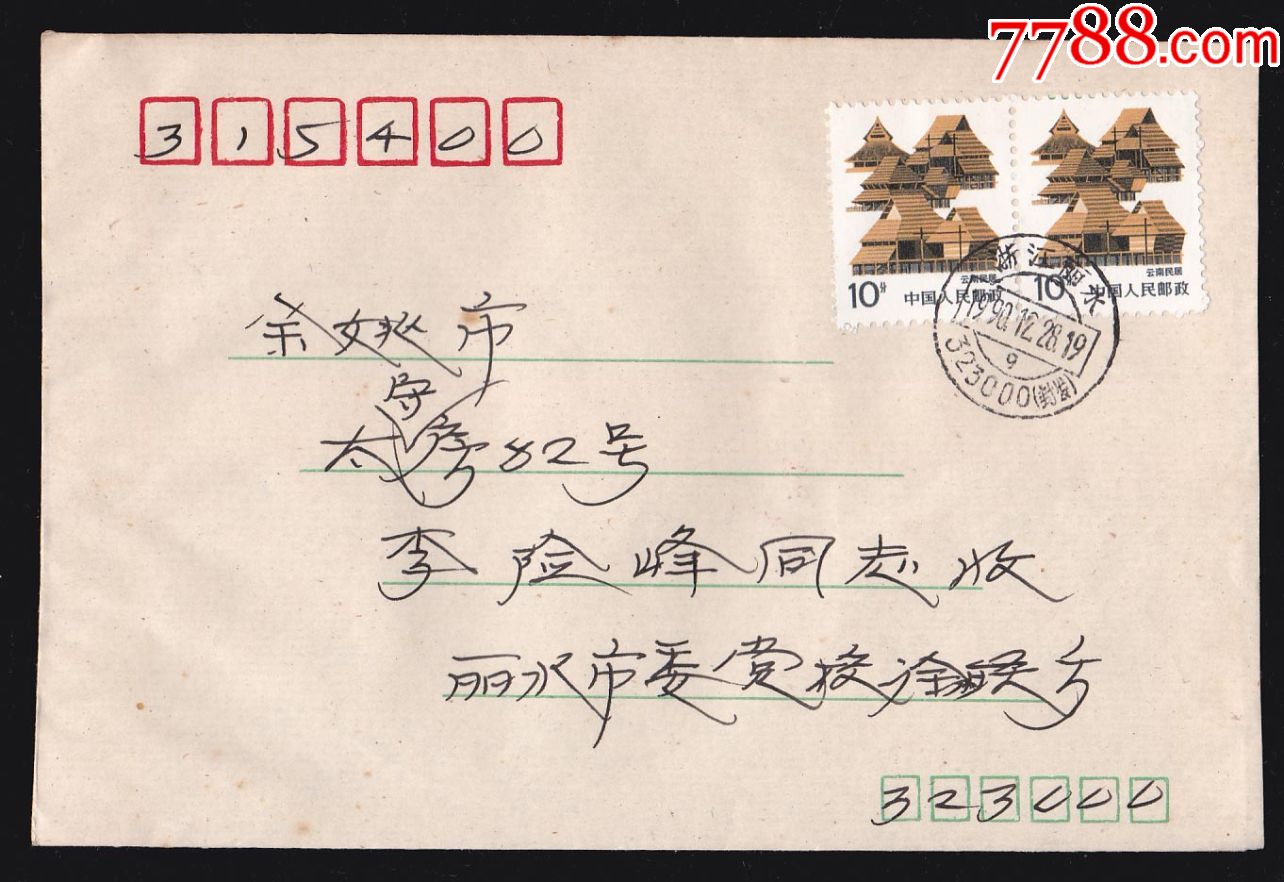 7788.com
315400
云南民居
10分 中国人民邮政
云南民居
10分 中国人民邮政
浙江丽水
1990.12.28.19
9
323000(封发)
余姚市
太平房82号
李险峰同志收
丽水市委党校徐
323000